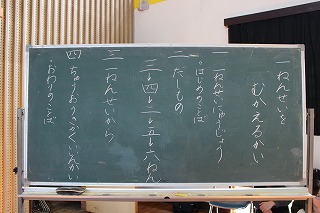 一ねんせいを
むかえるかい
一 一ねんせいにゅうじょう
・はじめのことば
二 だしもの
三→四→二→五→六ねん
三 一ねんせいから
四 ちゅおりのさくいんかい
・おわりのことば